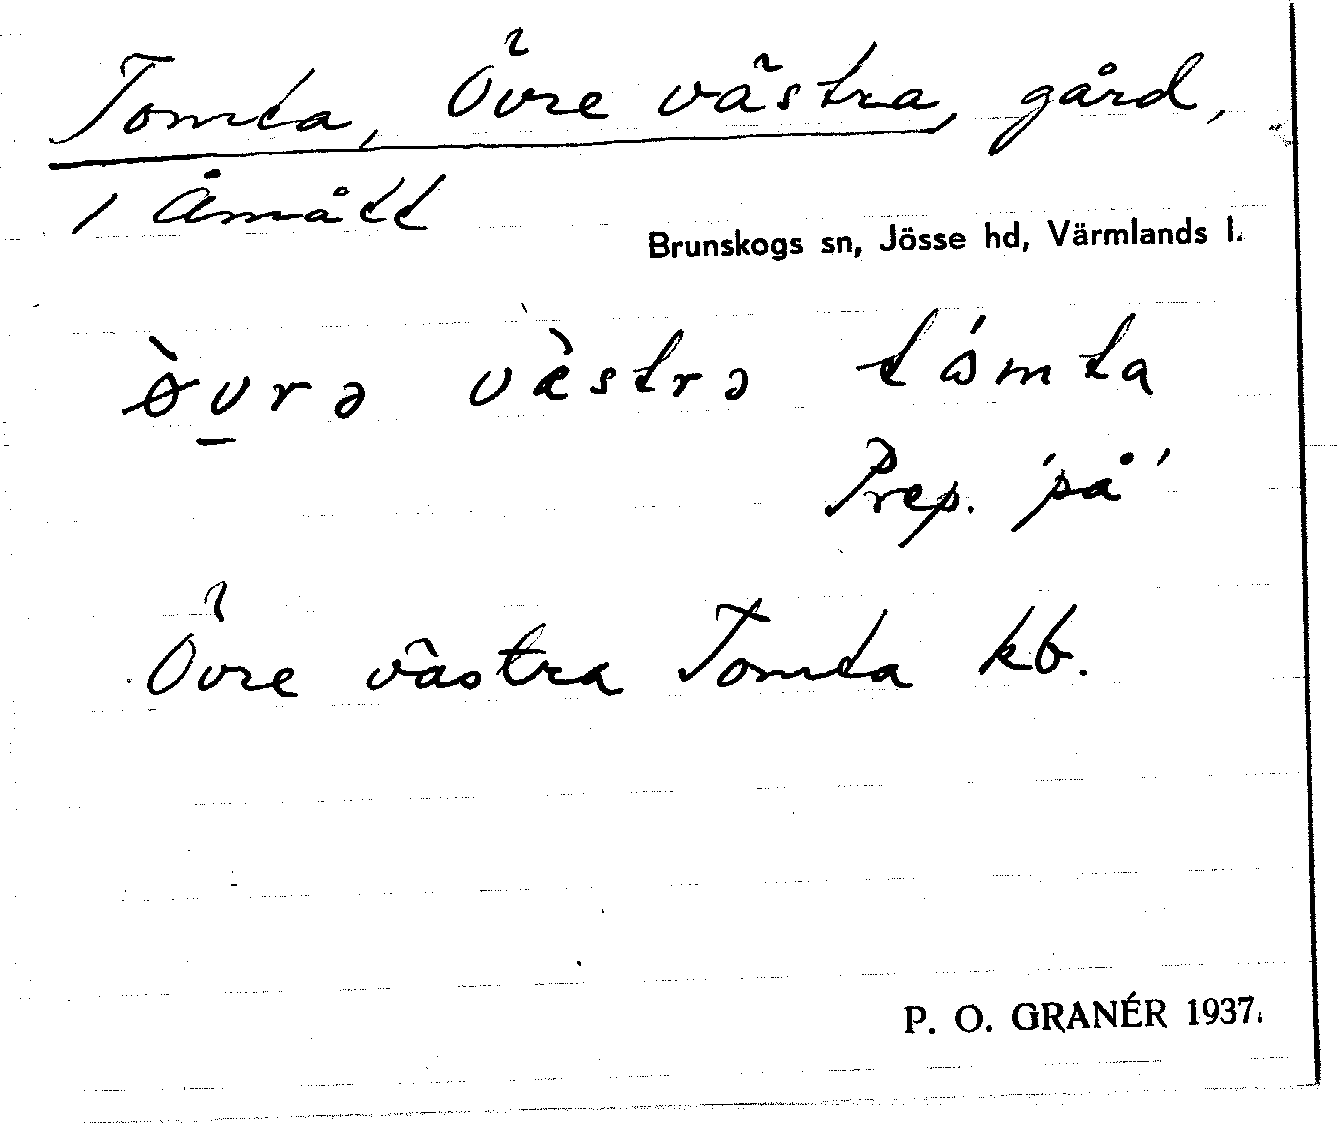 Tomta, Övre västra, gård,
1 Åmått
Brunskogs sn, Jösse hd, Värmlands l.
ø̀vrə vɛ̀strə tómta
Prep. 'på'
Övre västra Tomta kb.
P. O. GRANÉR 1937.